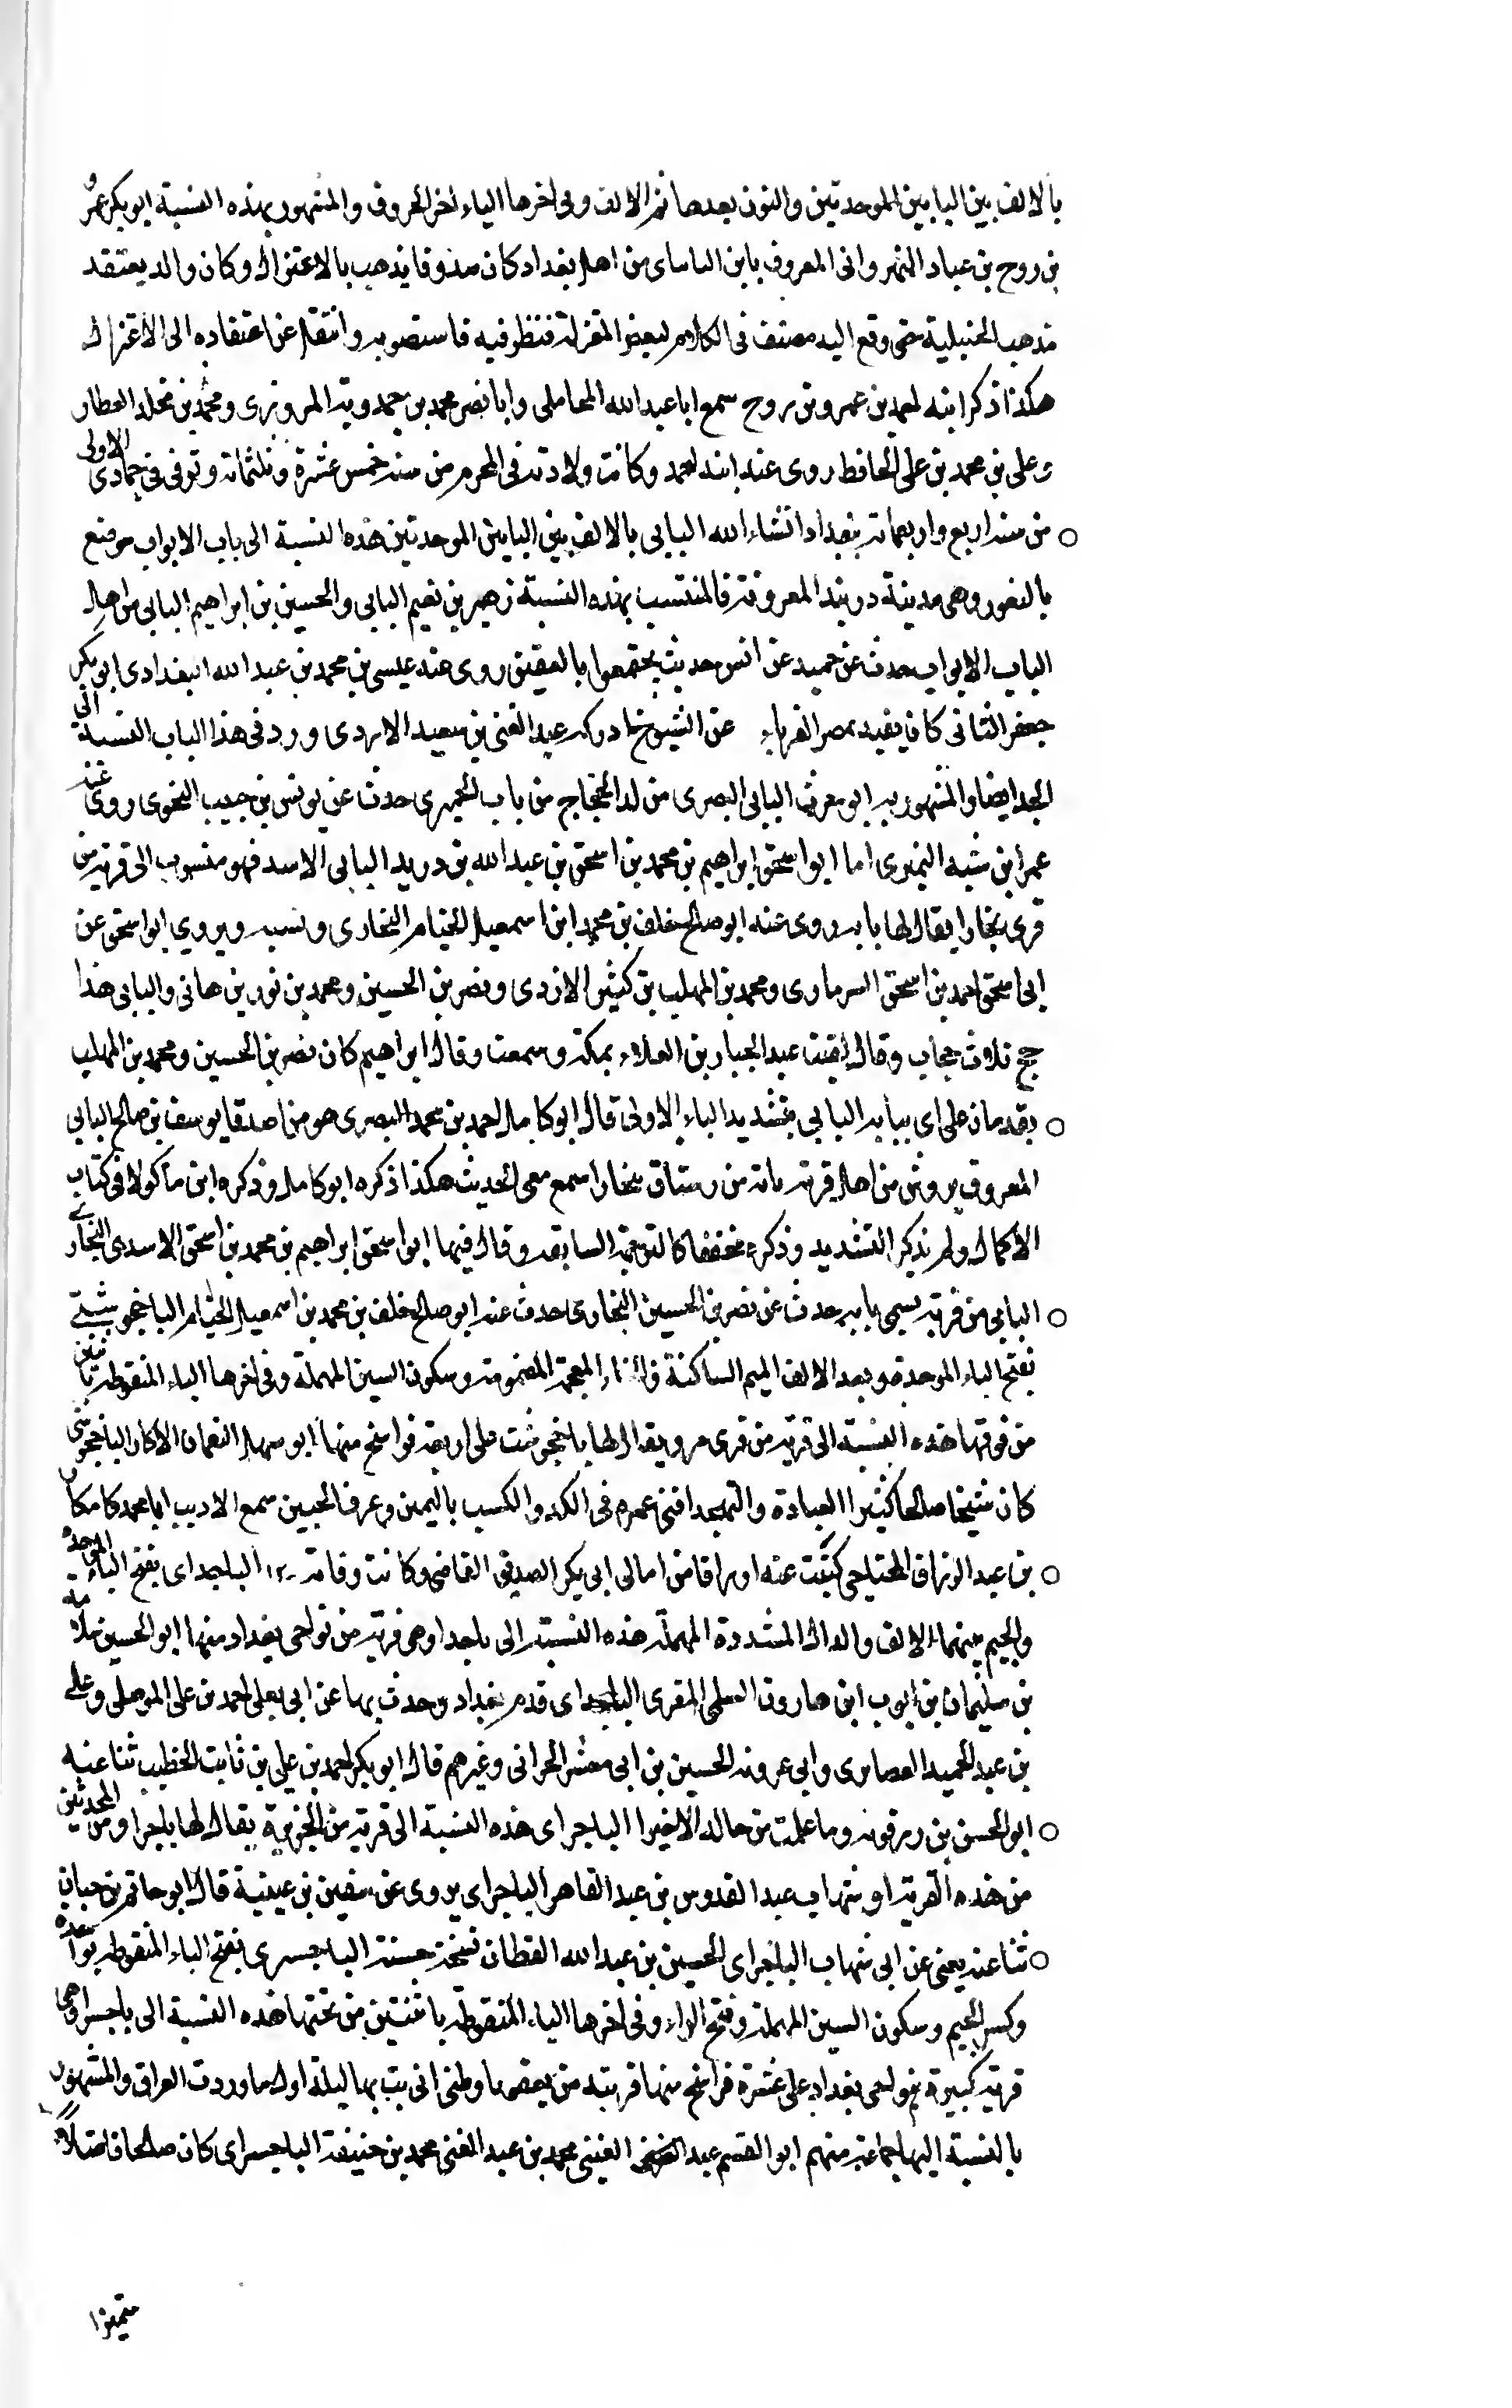 بالالف بين البابين الموحدتين والنون بعدها ثم الالف وفي اخرها الياء اخر الحروف والمشهور بهذه النسبة ابو بكر عمرو
بن روح بن عباد النهرواني المعروف بابن الباباي من اهل بغداد كان صدوقا يذهب بالاعتزال وكان والد يعتقد
مذهب الحنبلية حتى وقع اليه مصنف في الكلام لبعض المعتزلة فنظر فيه فاستصوبه وانتقل عن اعتقاده الى الاعتزال
هكذا ذكر ابنه احمد بن عمرو بن روح سمع ابا عبد الله المحاملي وابا نصر محمد بن حمدويه المروزي ومحمد بن مخلد العطار
وعلي بن محمد بن علي الحافظ روى عنه ابنه احمد وكانت ولادته في المحرم من سنه خمس عشرة وثلثمائه وتوفى في جمادى الاولى
من سنه اربع واربعمائه ببغداد انشاء الله البابي بالالف بين البايين الموحدتين هذه النسبة الى باب الابواب موضع
بالثغور وهى مدينة دربند المعروفه فالمنتسب بهذه النسبة زهير بن نعيم البابي والحسين بن ابراهيم البابي من اهل
الباب الابواب حدث عن حميد عن انس حديث تختموا بالعقيق روى عنه عيسى بن محمد بن عبد الله البغدادي ابو بكر
جعفر الثاني كان يفيد بمصر الغرباء عن الشيوخ ادركه عبد الغني بن سعيد الازدي وورد في هذا الباب النسبة الى
الجد ايضا والمشهور به ابو البابي البصري من لد الحجاج من باب الحميري حدث عن يونس بن حبيب النحوي روى عنه
عمر ابن شبه النميري اما ابو اسحق ابراهيم بن محمد بن اسحق بن عبد الله بن دريد البابي الاسد فهو منسوب الى قريه من
قرى بخارا يقال لها بابه روى عنه ابو صالح خلف بن محمد ابن اسمعيل الخيام البخاري ونسبه ويروي ابو اسحق عن
ابي اسحق احمد بن اسحق السرماري ومحمد بن المهلب بن كثير الازدي ونصر بن الحسين ومحمد بن نور بن هاني والبابي هذا
حج ثلاث حجات وقال لقيت عبد الجبار بن العلاء بمكه وسمعت وقال ابراهيم كان نصر بن الحسين ومحمد بن المهلب
يقدمان على اي ببابه البابي بتشديد الباء الاولى قال ابو كامل احمد بن محمد البصري هو من اصدقا يوسف بن صالح البابي
المعروف من اهل قريه بابه من رستاق بخارا سمع معى الحديث هكذا ذكره ابو كامل وذكره ابن ماكولا في كتاب
الاكمال ولم يذكر التشديد وذكره مخففا كالترجمة السابقه وقال فيها ابو اسحق ابراهيم بن محمد بن اسحق الاسدي البخاري
البابي من قريه يسمى بابه حدث عن نصر بن الحسين البخاري حدث عنه ابو صالح خلف بن محمد بن اسمعيل الخيام الباخجوستي
بفتح الباء الموحدة وبعد الالف الميم الساكنة والخاء المعجمة المضمومه وسكون السين المهملة وفي اخرها التاء المنقوطه باثنتين
من فوقها هذه النسبة الى قريه من قرى مرو يقال لها باخجوست على اربعه فراسخ منها ابو سهل النعمان الاكار الباخجوستي
كان شيخا صالحا كثير العبادة والتهجد افنى عمره في الكد والكسب باليمين وعرف الجبين سمع الاديب ابا محمد كامكار
بن عبد الرزاق المحتاجي كتبت عنه اوراقا من امالي ابي بكر الصدقي القاضي وكانت وفاته الباجداي بفتح الباء الموحدة
والجيم بينهما الالف والدال المشددة المهملة هذه النسبه الى باجدا وهى قريه من نواحى بغداد منها ابو الحسين سلامة
بن سليمان بن ايوب ابن هارون السلمي المقري الباجداي قدم بغداد وحدث بها عن ابي يعلى احمد بن علي الموصلي وعلي
بن عبد الحميد الغضايري وابي عروبه الحسين بن ابي معشر الحراني وغيرهم قال ابو بكر احمد بن علي بن ثابت الخطيب ثنا عنه
ابو الحسن بن رزقويه وما علمت من حاله الا خيرا الباجراي هذه النسبة الى قريه من الجزيرة يقال لها باجرا ومن المحدثين
من هذه القريه ابو شهاب عبد القدوس بن عبد القاهر الباجراي يروى عن سفين بن عيينة قال ابو حاتم بن حبان
ثنا عنه يعني عن ابي شهاب الباجراي الحسين بن عبد الله القطان نسخة حسنة الباجسري بفتح الباء المنقوطه بواحده
وكسر الجيم وسكون السين المهملة وفتح الراء وفي اخرها الياء المنقوطه باثنتين من تحتها هذه النسبة الى باجسرا وهى
قريه كبيرة بنواحى بغداد على عشرة فراسخ منها قريبه من بعقوبا وظنى انى بت بها ليلة اول ما وردت العراق والمشهور
بالنسبة اليها جماعة منهم ابو القسم عبد الغني الغيني محمد بن عبد الغني محمد بن حنيفة الباجسراي كان صالحا فاضلا
متميزا